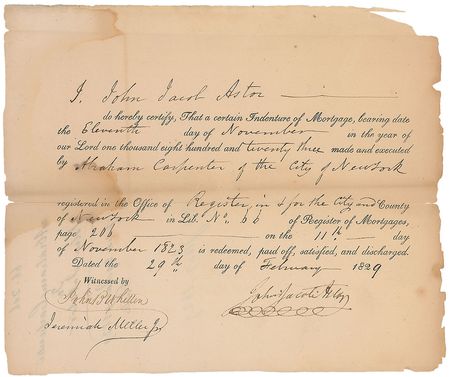 I, John Jacob Astor
do hereby certify, That a certain Indenture of Mortgage, bearing date
the Eleventh day of November in the year of
our Lord one thousand eight hundred and twenty three made and executed
by Abraham Carpenter of the City of New York
registered in the Office of Register, in & for the City and County
of New York in Lib. No. 66 of Register of Mortgages,
page 206 on the 11th day
of November 1823 is redeemed, paid off, satisfied, and discharged.
Dated the 29th day of February 1829
Witnessed by
John Jacob Astor
Jeremiah Miller Jr